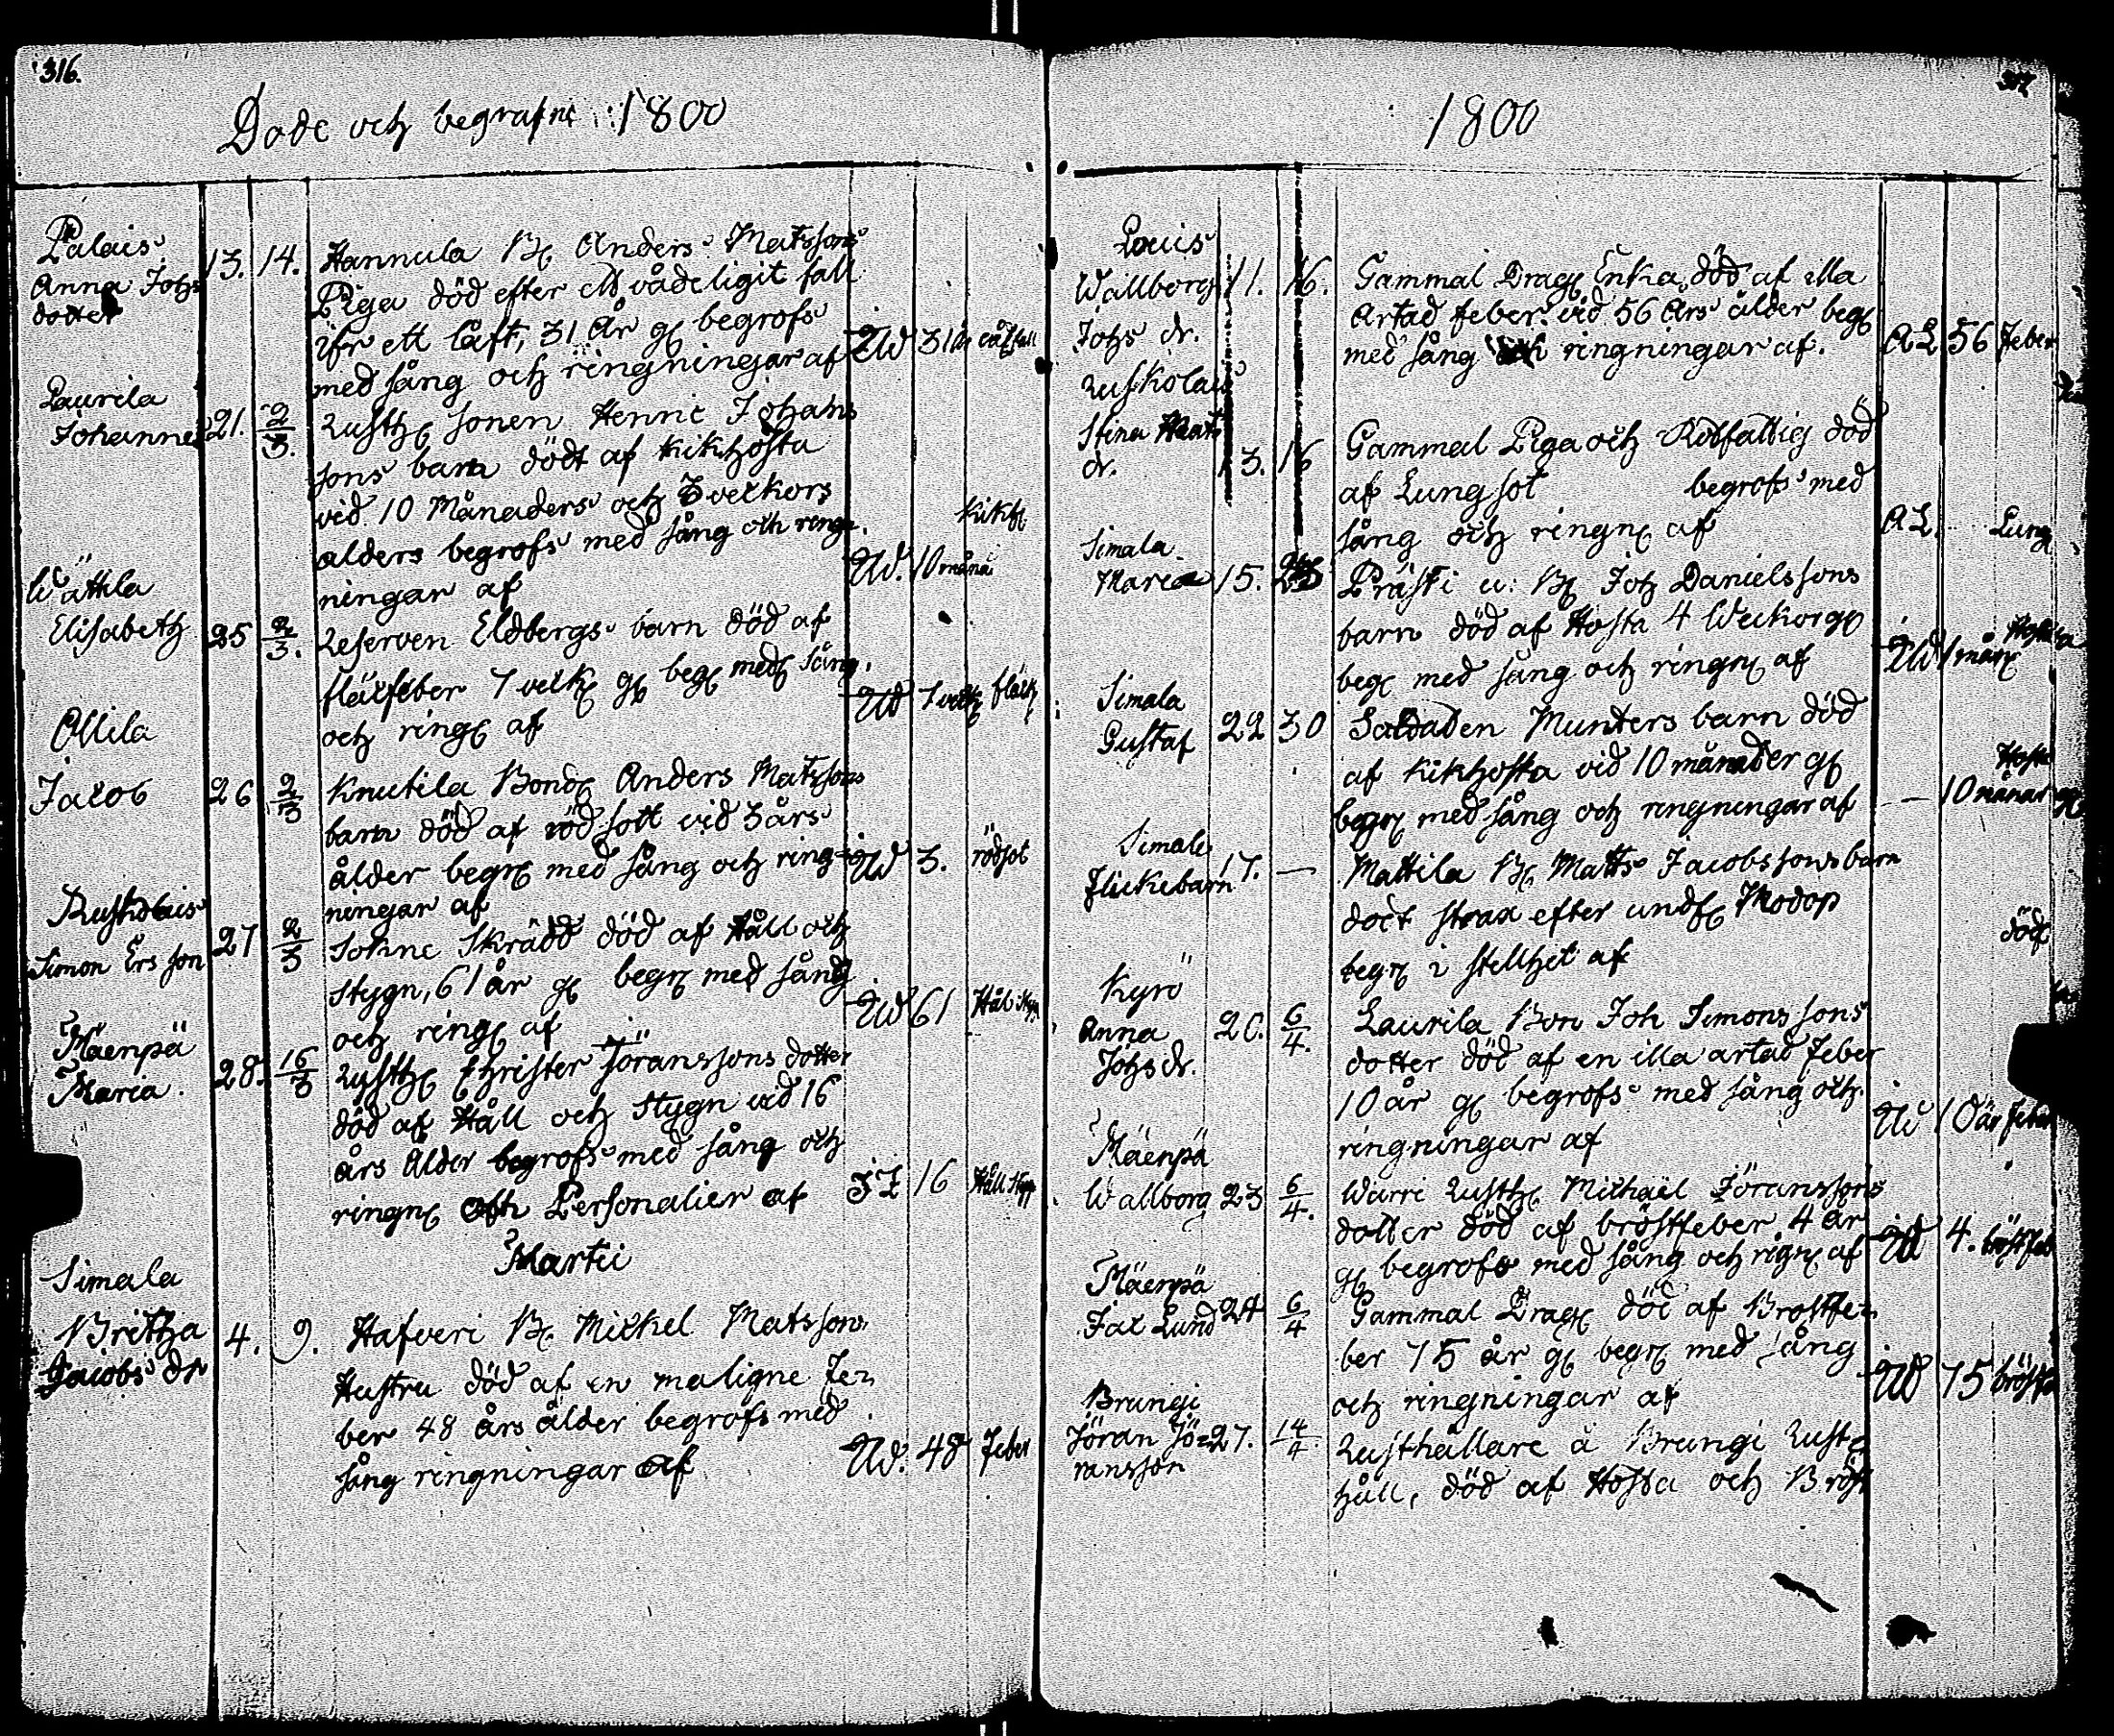 316.
Döde och begrafne 1800
Palais
Anna Johs
dotter
13. 14.
Hannula B. Anders Matssons
Piga död efter ett vådeligit fall
ifr ett låft, 31 år g. begrofs
med sång och ringningar af
UW 31 år
Laurila
Johannes
21. 2/3.
Rusth. sonen Henric Johans
sons barn dödt af kikhosta
vid 10 Månaders och 3 veckors
alders begrofs med sång och ring
ningar af
UW. 10 måna
kikh
Wättla
Elisabeth
25 2/3.
Reserven Eldbergs barn död af
fläckfeber 7 veck g. beg. med sång
och ring. af
UW 7 veck fläck
Ollila
Jacob
26 2/3
Knutila Bond. Anders Matssons
barn död af rödsott vid 3 års
ålder begr. med sång och ring=
ningar af
UW 3. rödsot
Ruskolais
Simon Ers son
27 2/3
Sokne Skrädd död af Håll och
stygn, 61 år g. begr. med sång
och ring. af
UW 61 Håll Styg
Mäenpä
Maria.
28. 16/3
Rusth. Christer Jöranssons dotter
död af Håll och stygn vid 16
års Ålder begrofs med sång och
ringn. och Personalier af
16 Håll Styg
Martii
Simala
Britha
Jacobs dr
4. 9.
Hafveri B. Mickel Matssons
Hustru död af en maligne Fe=
ber 48 års ålder begrofs med
sång ringningar af
UW. 48 Feber
1800
Louis
Wallborg
Johs dr.
11. 16.
Gammal Drag. Enka, död af illa
Artad feber vid 56 Ars ålder beg.
med sång och ringningar af.
AL 56 Feber
Ruskolais
Stina Mats
dr.
13. 16
Gammal Piga och Rotfattig död
af Lungsot begrofs med
sång och ringn. af
AL. Lung
Simala
Maria
15. 23
Prästi u: B. Joh Danielssons
barn död af Hosta 4 Weckor g.
beg. med sång och ringn. af
UW 1 mån Hosta
Simala
Gustaf
22 30
Soldaten Munters barn död
af kikhosta vid 10 månader g.
begr. med sång och ringningar af
— 10 månar Hosta
Simala
flickebarn
17. —
Mattila B. Matts Jacobssons barn
dödt strax efter undf. Nödop
begr. i stillhet af
dödf
Kyrö
Anna
Johs dr.
20. 6/4.
Laurila Bon Joh Simonssons
dotter död af en illa artad feber
10 år g. begrofs med sång och
ringningar af
UW 10 år feber
Mäenpä
Wallborg
23 6/4.
Warri Rusth. Michaël Jöranssons
dotter död af bröstfeber 4 år
g. begrofs med sång och rign. af
UW 4. bröstfeb
Mäenpä
Jac Lund
24 6/4
Gammal Drag. död af Brostfe=
ber 75 år g. begr. med sång
och ringningar af
UW 75 bröstf
Brungi
Jöran Jö=
ransson
27. 14/4.
Rusthållare å Brungi Rust=
håll, död af Hosta och Bröst